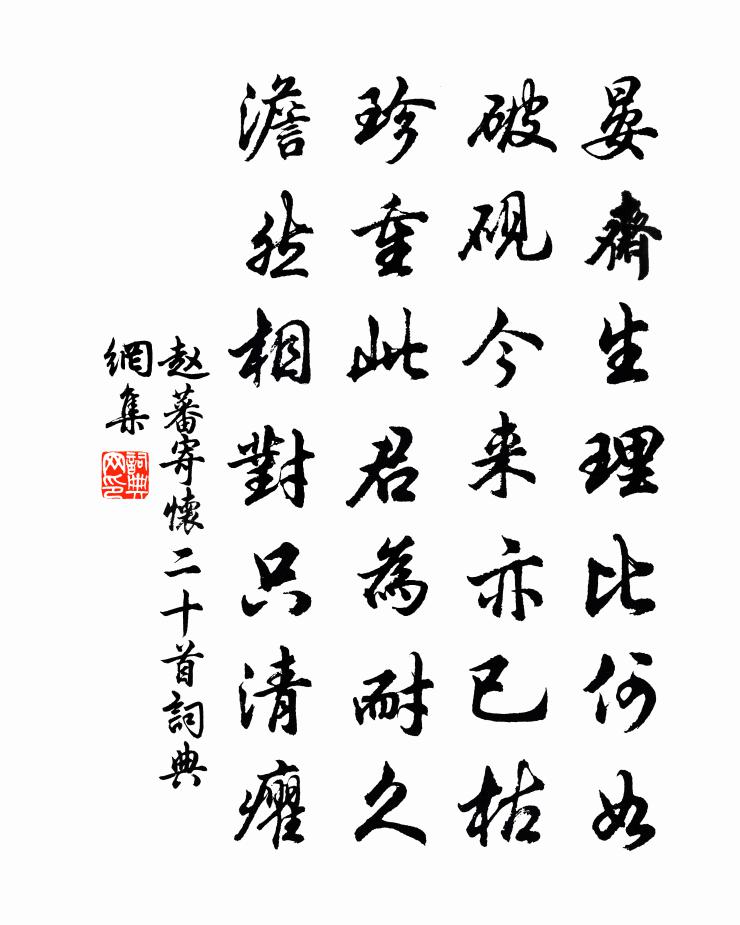 晏齋生理比何如
破硯今来亦已枯
珍重此君為耐久
澹然相對只清癯
赵蕃寄懷二十首詞典
網集
詞典
网印